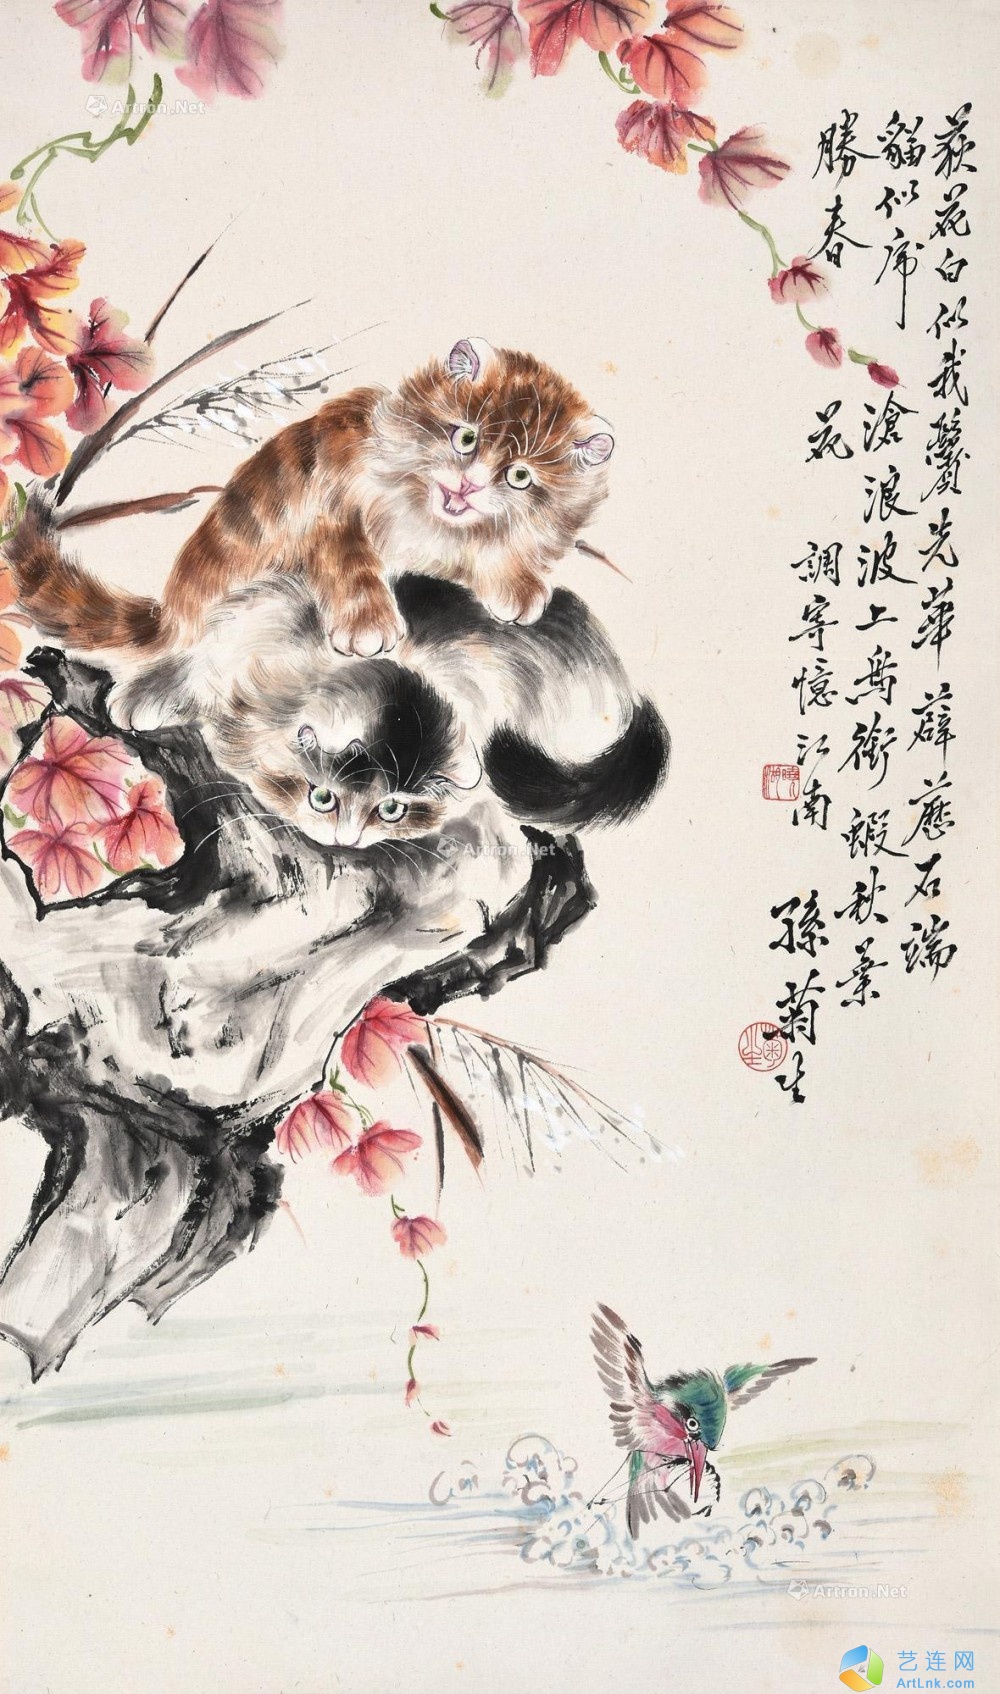 荻花白似我鬢先華薜荔石端
貓似虎滄浪波上鳥銜蝦秋葉
勝春花調寄憶江南
孫菊生
Artron.Net
Artron.Net
Artron.Net
艺连网
ArtLnk.com